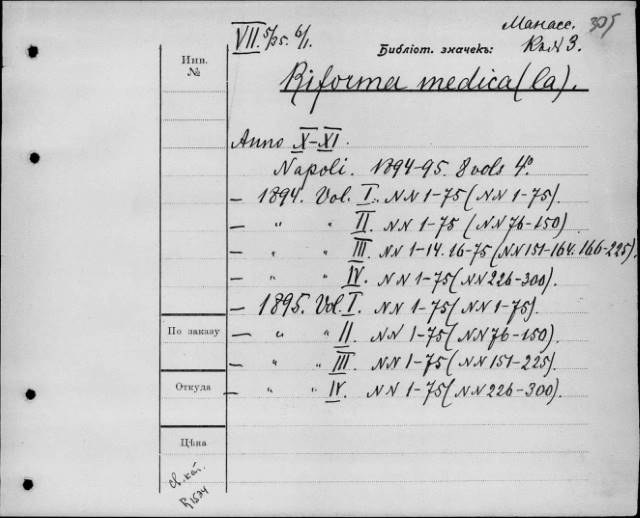 VII. 5/25. 6/1.
Манасс. 305
Библіот. значекъ: К. № 3.
Инв.
№
Riforma medica (la).
Anno X-XI.
Napoli. 1894-95. 8 vols 4°
– 1894. Vol. I. NN 1-75 (NN 1-75).
– " " II. NN 1-75 (NN 76-150)
– " " III. NN 1-14. 16-75 (NN 151-164. 166-225).
– " " IV. NN 1-75 (NN 226-300).
– 1895. Vol. I. NN 1-75 (NN 1-75).
По заказу
– " " II. NN 1-75 (NN 76-150).
– " " III. NN 1-75 (NN 151-225).
Откуда
– " " IV. NN 1-75 (NN 226-300).
Цѣна
св. кат.